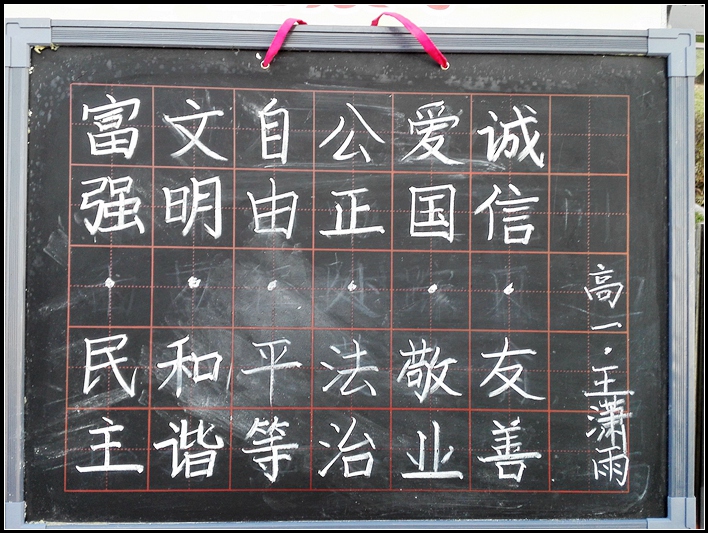 富强·民主
文明·和谐
自由·平等
公正·法治
爱国·敬业
诚信·友善
高一·王潇雨